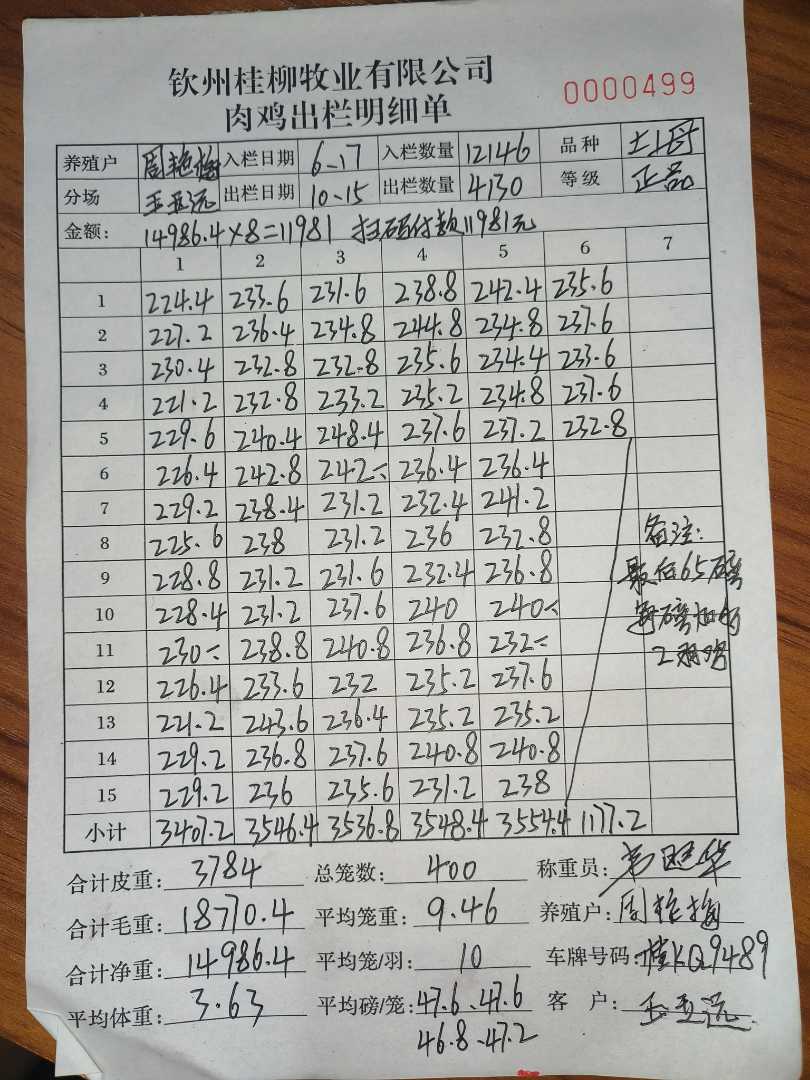 钦州桂柳牧业有限公司
肉鸡出栏明细单
0000499
养殖户 周艳梅 入栏日期 6-17 入栏数量 12146 品种 土
分场 王亚远 出栏日期 10-15 出栏数量 4130 等级 正品
金额: 14986.4×8=11981 扫码付款11981元
1 2 3 4 5 6 7
1 224.4 233.6 231.6 238.8 242.4 235.6
2 227.2 236.4 234.8 244.8 234.8 237.6
3 230.4 232.8 232.8 235.6 234.4 233.6
4 221.2 232.8 233.2 235.2 234.8 237.6
5 229.6 240.4 248.4 237.6 237.2 232.8
6 226.4 242.8 242 236.4 236.4
7 229.2 238.4 231.2 232.4 241.2
8 225.6 238 231.2 236 232.8 备注:
9 228.8 231.2 231.6 232.4 236.8 最后65磅
10 228.4 231.2 237.6 240 240 每磅
11 230 238.8 240.8 236.8 232 2
12 226.4 233.6 232 235.2 237.6
13 221.2 243.6 236.4 235.2 235.2
14 229.2 236.8 237.6 240.8 240.8
15 229.2 236 235.6 231.2 238
小计 3407.2 3546.4 3536.8 3548.4 3554.4 1177.2
合计皮重: 3784 总笼数: 400 称重员: 华
合计毛重: 18770.4 平均笼重: 9.46 养殖户: 周艳梅
合计净重: 14986.4 平均笼/羽: 10 车牌号码: 桂KQ9489
平均体重: 3.63 平均磅/笼: 47.6.47.6 客户: 王亚远
46.8-47.2